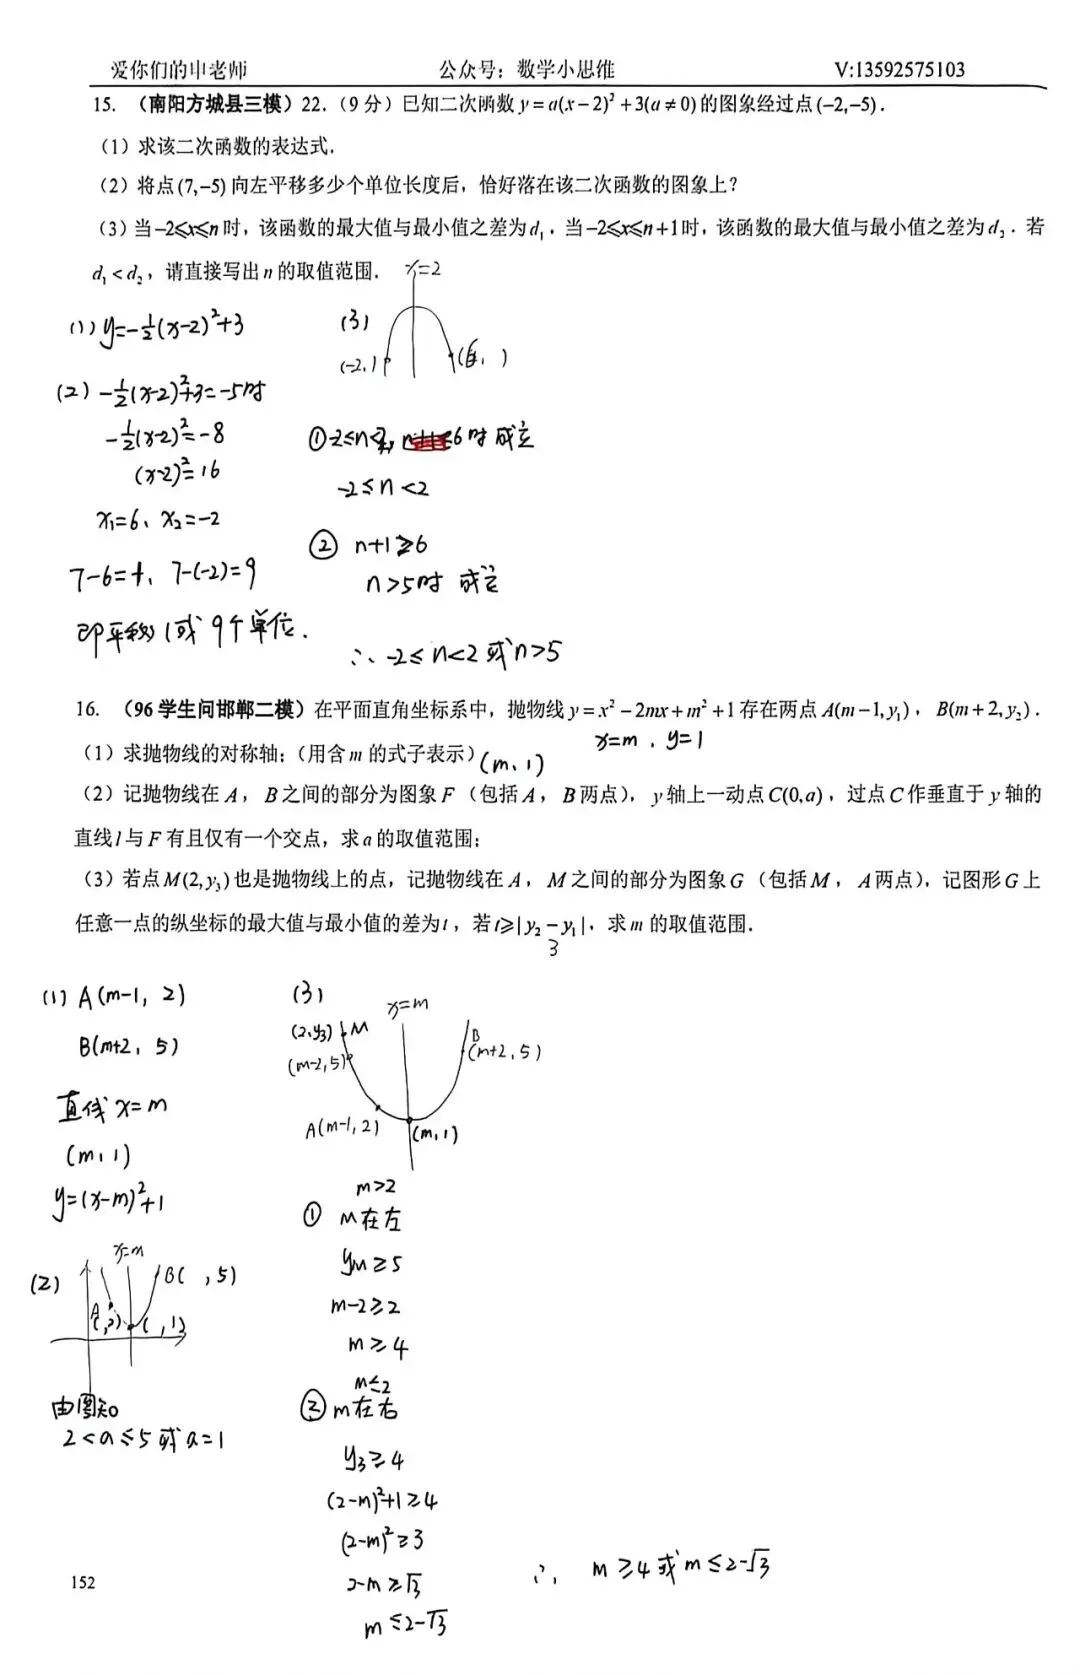 爱你们的申老师 公众号：数学小思维 V:13592575103
15. （南阳方城县三模）22.（9分）已知二次函数 y=a(x-2)²+3(a≠0) 的图象经过点(-2,-5).
（1）求该二次函数的表达式.
（2）将点(7,-5)向左平移多少个单位长度后，恰好落在该二次函数的图象上？
（3）当-2≤x≤n时，该函数的最大值与最小值之差为d₁，当-2≤x≤n+1时，该函数的最大值与最小值之差为d₂. 若
d₁<d₂，请直接写出n的取值范围.
x=2
(1) y=-½(x-2)²+3
(3)
(-2, )
(2) -½(x-2)²+3=-5时
-½(x-2)²=-8
(x-2)²=16
x₁=6、x₂=-2
7-6=1、7-(-2)=9
即平移1或9个单位.
① -2≤n<2, 6时 成立
-2≤n<2
② n+1≥6
n>5时 成立
∴ -2≤n<2或n>5
16. （96学生问邯郸二模）在平面直角坐标系中，抛物线 y=x²-2mx+m²+1 存在两点 A(m-1,y₁)，B(m+2,y₂).
x=m , y=1
（1）求抛物线的对称轴；（用含m的式子表示）
(m、1)
（2）记抛物线在A，B之间的部分为图象F（包括A，B两点），y轴上一动点C(0,a)，过点C作垂直于y轴的
直线l与F有且仅有一个交点，求a的取值范围；
（3）若点M(2,y₃)也是抛物线上的点，记抛物线在A，M之间的部分为图象G（包括M，A两点），记图形G上
任意一点的纵坐标的最大值与最小值的差为t，若t≥|y₂-y₁|，求m的取值范围.
3
(1) A(m-1, 2)
B(m+2, 5)
直线 x=m
(m, 1)
y=(x-m)²+1
(2)
x=m
B( , 5)
A
( ,2)
( , 1)
由图知
2<a≤5或a=1
(3)
x=m
(2,y₃) M
(m-2,5)
B
(m+2,5)
A(m-1,2)
(m,1)
m>2
① M在左
yM≥5
m-2≥2
m≥4
m≤2
② m在右
y₃≥4
(2-m)²+1≥4
(2-m)²≥3
2-m≥√3
m≤2-√3
∴ m≥4或m≤2-√3
152